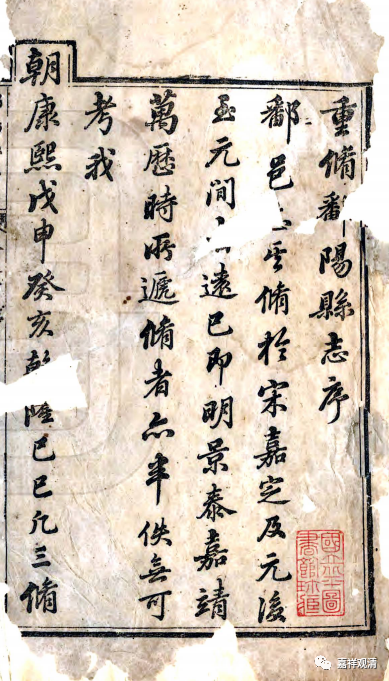 重脩鄱陽縣志序
鄱邑脩於宋嘉定及元後
至元間遠已即明景泰嘉靖
萬歷時所遞脩者亦半佚無可
考我
朝康熙戊申癸亥乾隆已巳凡三脩
國立北平圖
書館珍藏
嘉祥观清